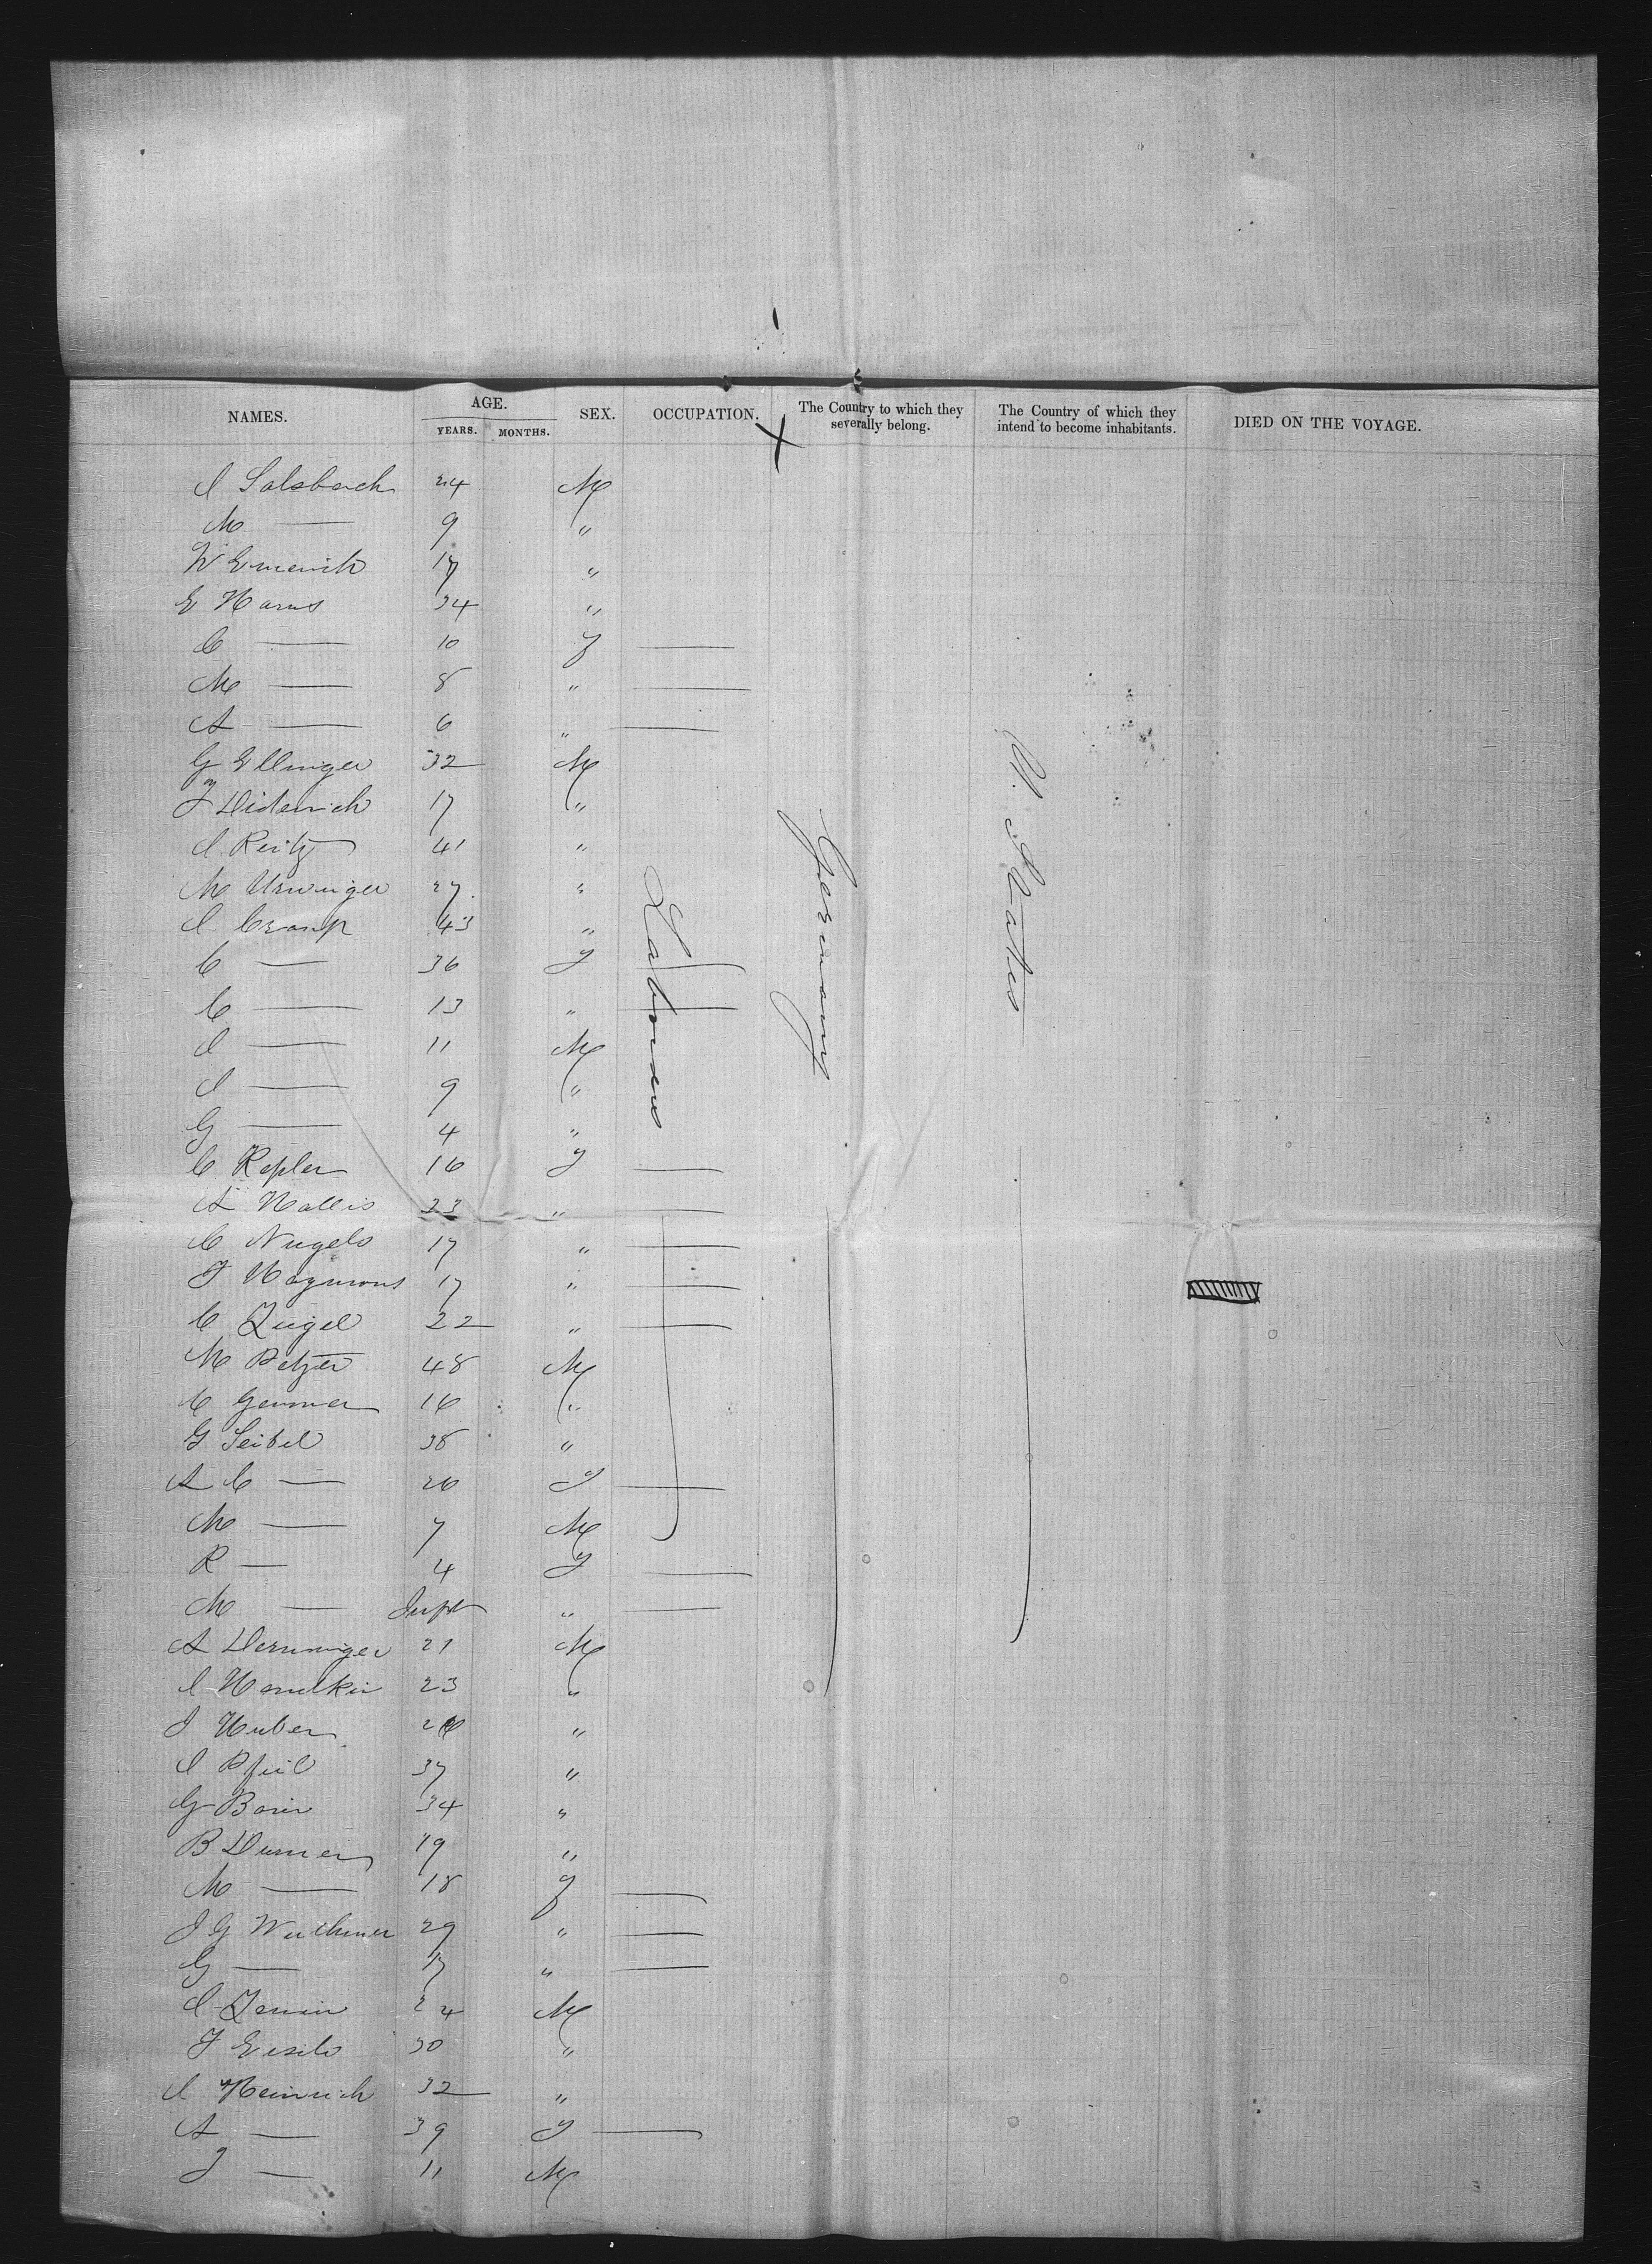 NAMES. AGE. YEARS. MONTHS. SEX. OCCUPATION. The Country to which they severally belong. The Country of which they intend to become inhabitants. DIED ON THE VOYAGE.
Salsbach 24 M
M — 9 "
W Emerich 17 "
E Harns 34 "
C — 10 F —
M — 8 " —
A — 6 " —
G Ellinger 32 M
J Diderich 17 "
J Reitz 41 "
M 27 "
J Cramp 43 "
C — 36 F —
C — 13 " —
J — 11 M
J — 9 "
G — 4 "
C Kepler 16 F —
A Hallis 23 " —
C Nugels 17 " —
F 17 " —
C Zugel 22 " —
M Petzer 48 M
C Gemmer 16 "
G Seibel 38 "
A C — 26 F —
M — 7 M
R — 4 F —
M — Inft " —
A 21 M
J 23 "
J Huber "
J Pfeil 37 "
G Baur 34 "
B Durner 19 "
M — 18 F —
J G 29 " —
G — 17 " —
24 M
F 30 "
J Heinrich 32 "
A — 39 F —
J — 11 M
Laborers
Germany
U. States